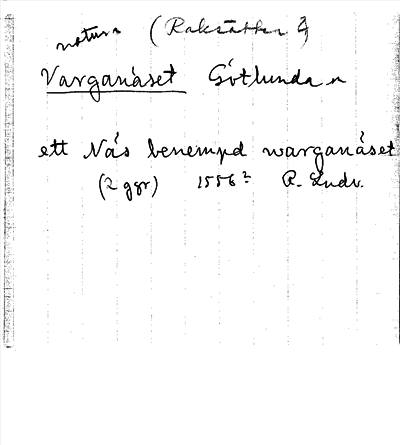 natur (Raksätter ?)
Varganäset Götlunda n
ett Näs benempd warganäset
(2 ggr) 1556? R. Ludv.